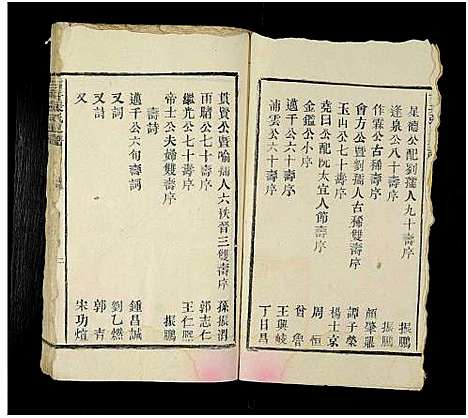 星德公配劉孺人九十壽序 振鵬
逢泉公八十壽序 振鵬
作霖公古稀壽序 顏肇
會方公暨劉孺人古稀雙壽序 譚子榮
玉山公七十壽序 楊士京
堯曰公配阮太宜人節壽序 周恒
金鑑公小序 曾魯
邁千公六十壽序 王興岐
浦雲公六十壽序 丁日昌
貫賢公暨喻孺人六袟晉三雙壽序 孫振渭
雨疇公七十壽序 郭志仁
繼光公七十壽序 王仁熈
帝士公夫婦雙壽序 振鵬
壽詩
邁千公六旬壽詞 鍾昌誠
又詞 劉乙燃
又詩 郭青
又 宋功煊